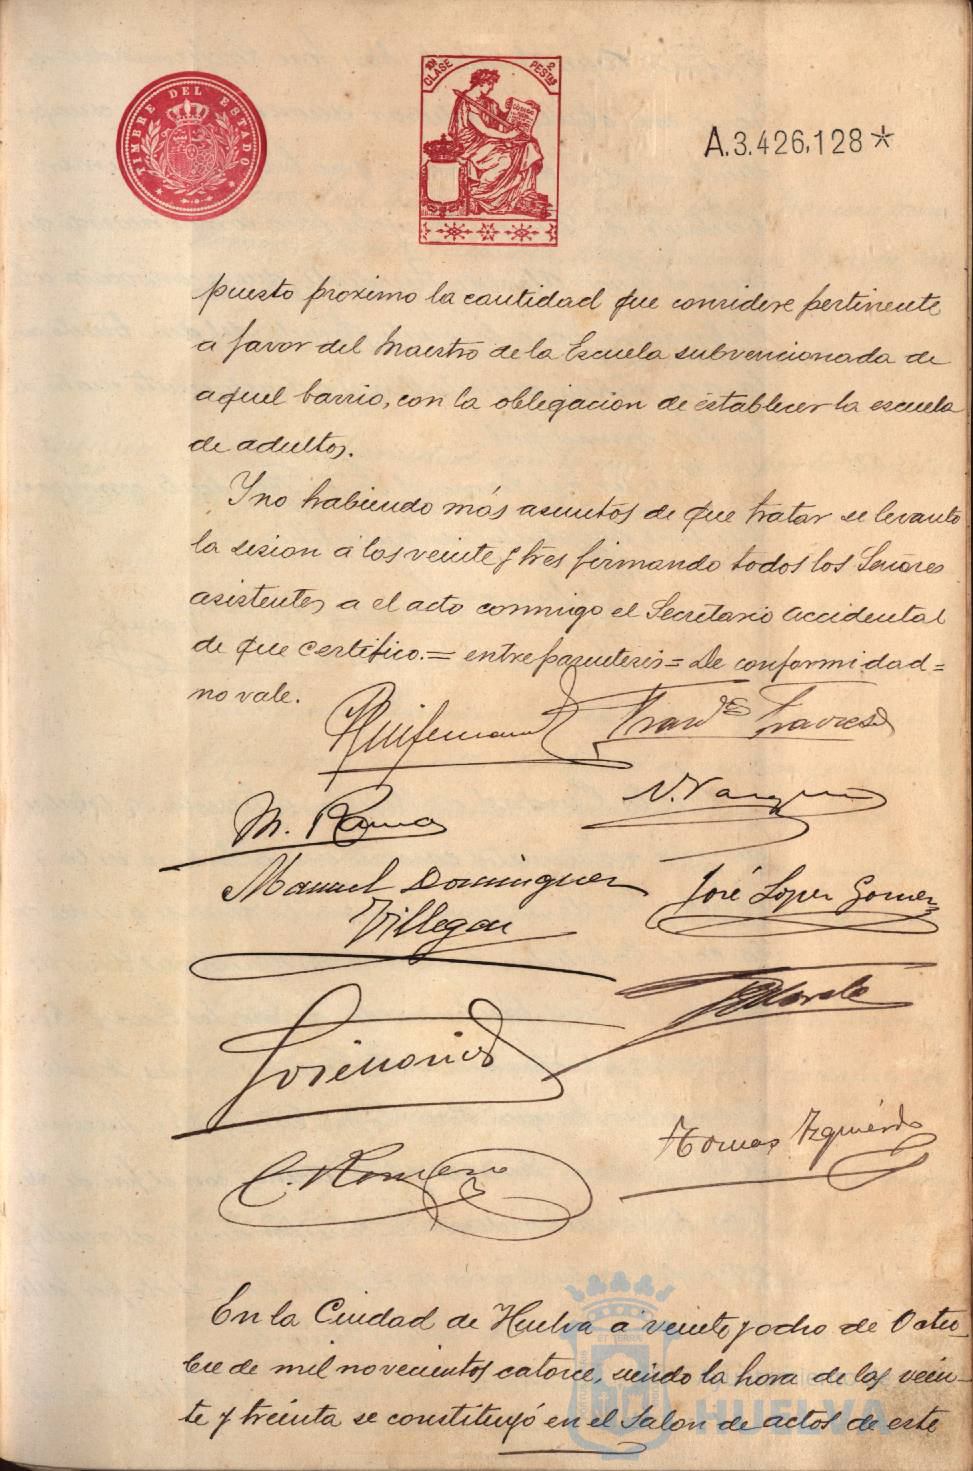 TIMBRE DEL ESTADO
CLASE 2 PESTAS
A.3.426,128*
puesto proximo la cantidad que considere pertinente
a favor del Maestro de la Escuela subvencionada de
aquel barrio, con la obligacion de establecer la escuela
de adultos.
Y no habiendo más asuntos de que tratar se levanto
la sesion a las veinte y tres firmando todos los Señores
asistentes a el acto conmigo el Secretario accidental
de que certifico.= entreparentesis= De conformidad=
no vale.
M. Ramos
N. Vazquez
Manuel Dominguez
Villegas
José Lopez Gomez
C. Romero
Tomas Izquierdo
En la Ciudad de Huelva a veinte y ocho de Octu-
bre de mil novecientos catorce, siendo la hora de las vein-
te y treinta se constituyó en el Salon de actos de este
HUELVA